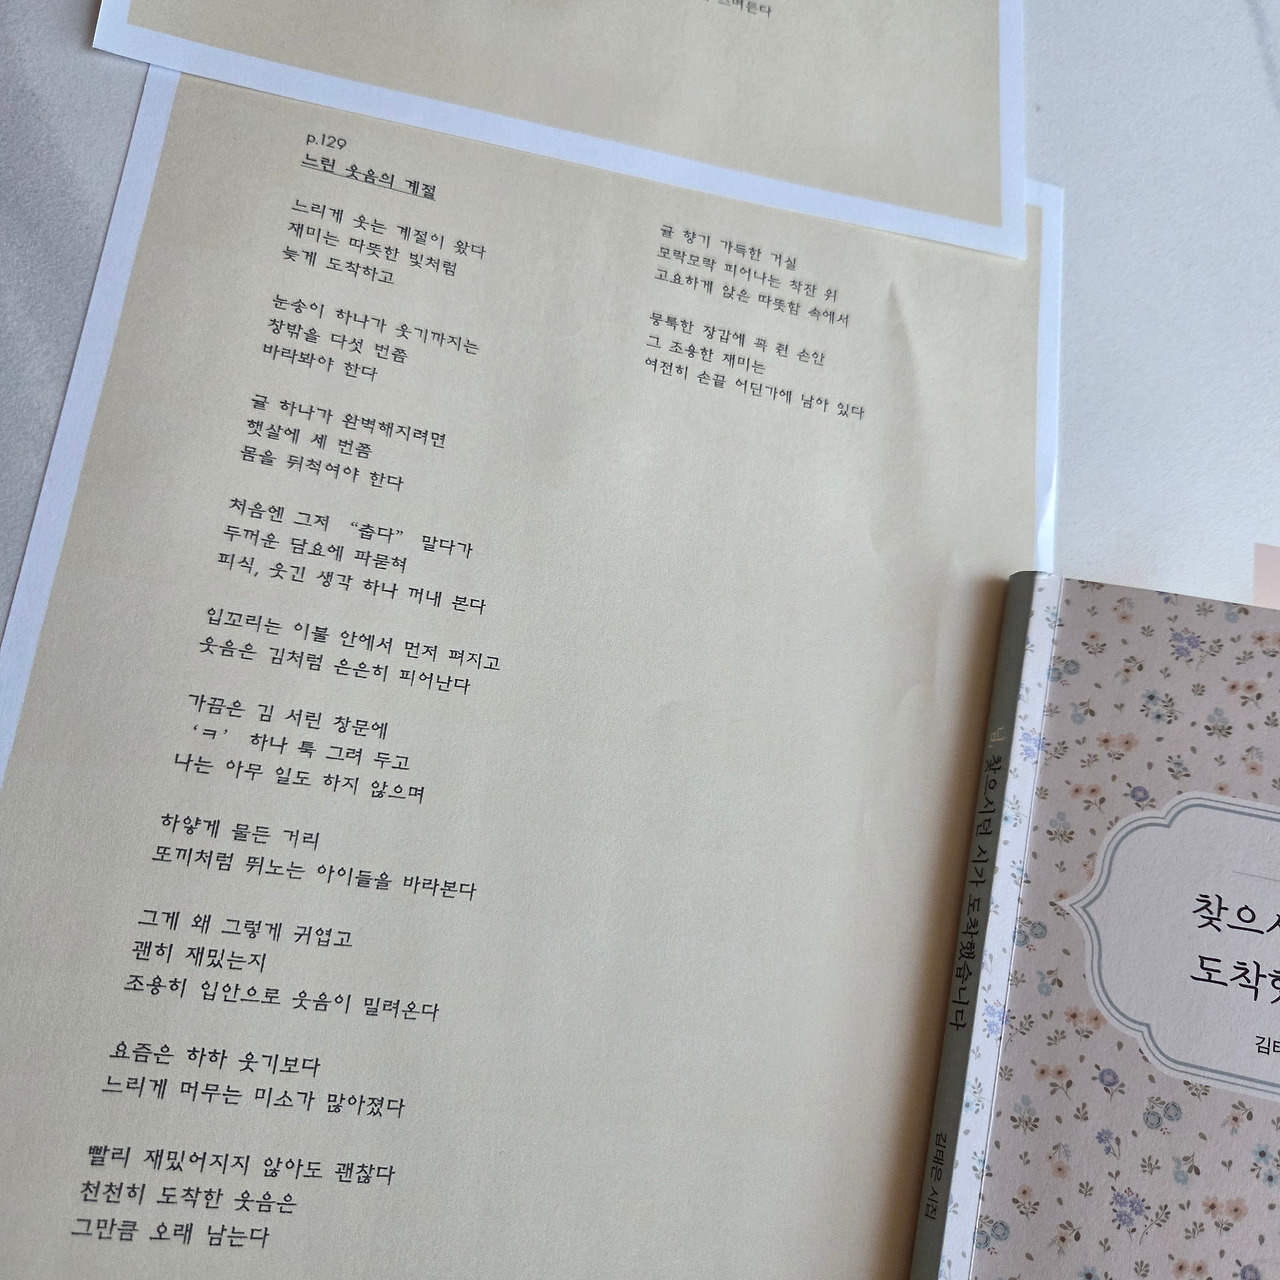 스며든다
p.129
느린 웃음의 계절
느리게 웃는 계절이 왔다
재미는 따뜻한 빛처럼
늦게 도착하고
눈송이 하나가 웃기까지는
창밖을 다섯 번쯤
바라봐야 한다
귤 하나가 완벽해지려면
햇살에 세 번쯤
몸을 뒤척여야 한다
처음엔 그저 “춥다” 말다가
두꺼운 담요에 파묻혀
피식, 웃긴 생각 하나 꺼내 본다
입꼬리는 이불 안에서 먼저 펴지고
웃음은 김처럼 은은히 피어난다
가끔은 김 서린 창문에
‘ㅋ’ 하나 툭 그려 두고
나는 아무 일도 하지 않으며
하얗게 물든 거리
또끼처럼 뛰노는 아이들을 바라본다
그게 왜 그렇게 귀엽고
괜히 재밌는지
조용히 입안으로 웃음이 밀려온다
요즘은 하하 웃기보다
느리게 머무는 미소가 많아졌다
빨리 재밌어지지 않아도 괜찮다
천천히 도착한 웃음은
그만큼 오래 남는다
귤 향기 가득한 거실
모락모락 피어나는 찻잔 위
고요하게 앉은 따뜻함 속에서
뭉툭한 장갑에 꼭 쥔 손안
그 조용한 재미는
여전히 손끝 어딘가에 남아 있다
님, 찾으시던 시가 도착했습니다
김태은 시집
찾으시
도착했
김태